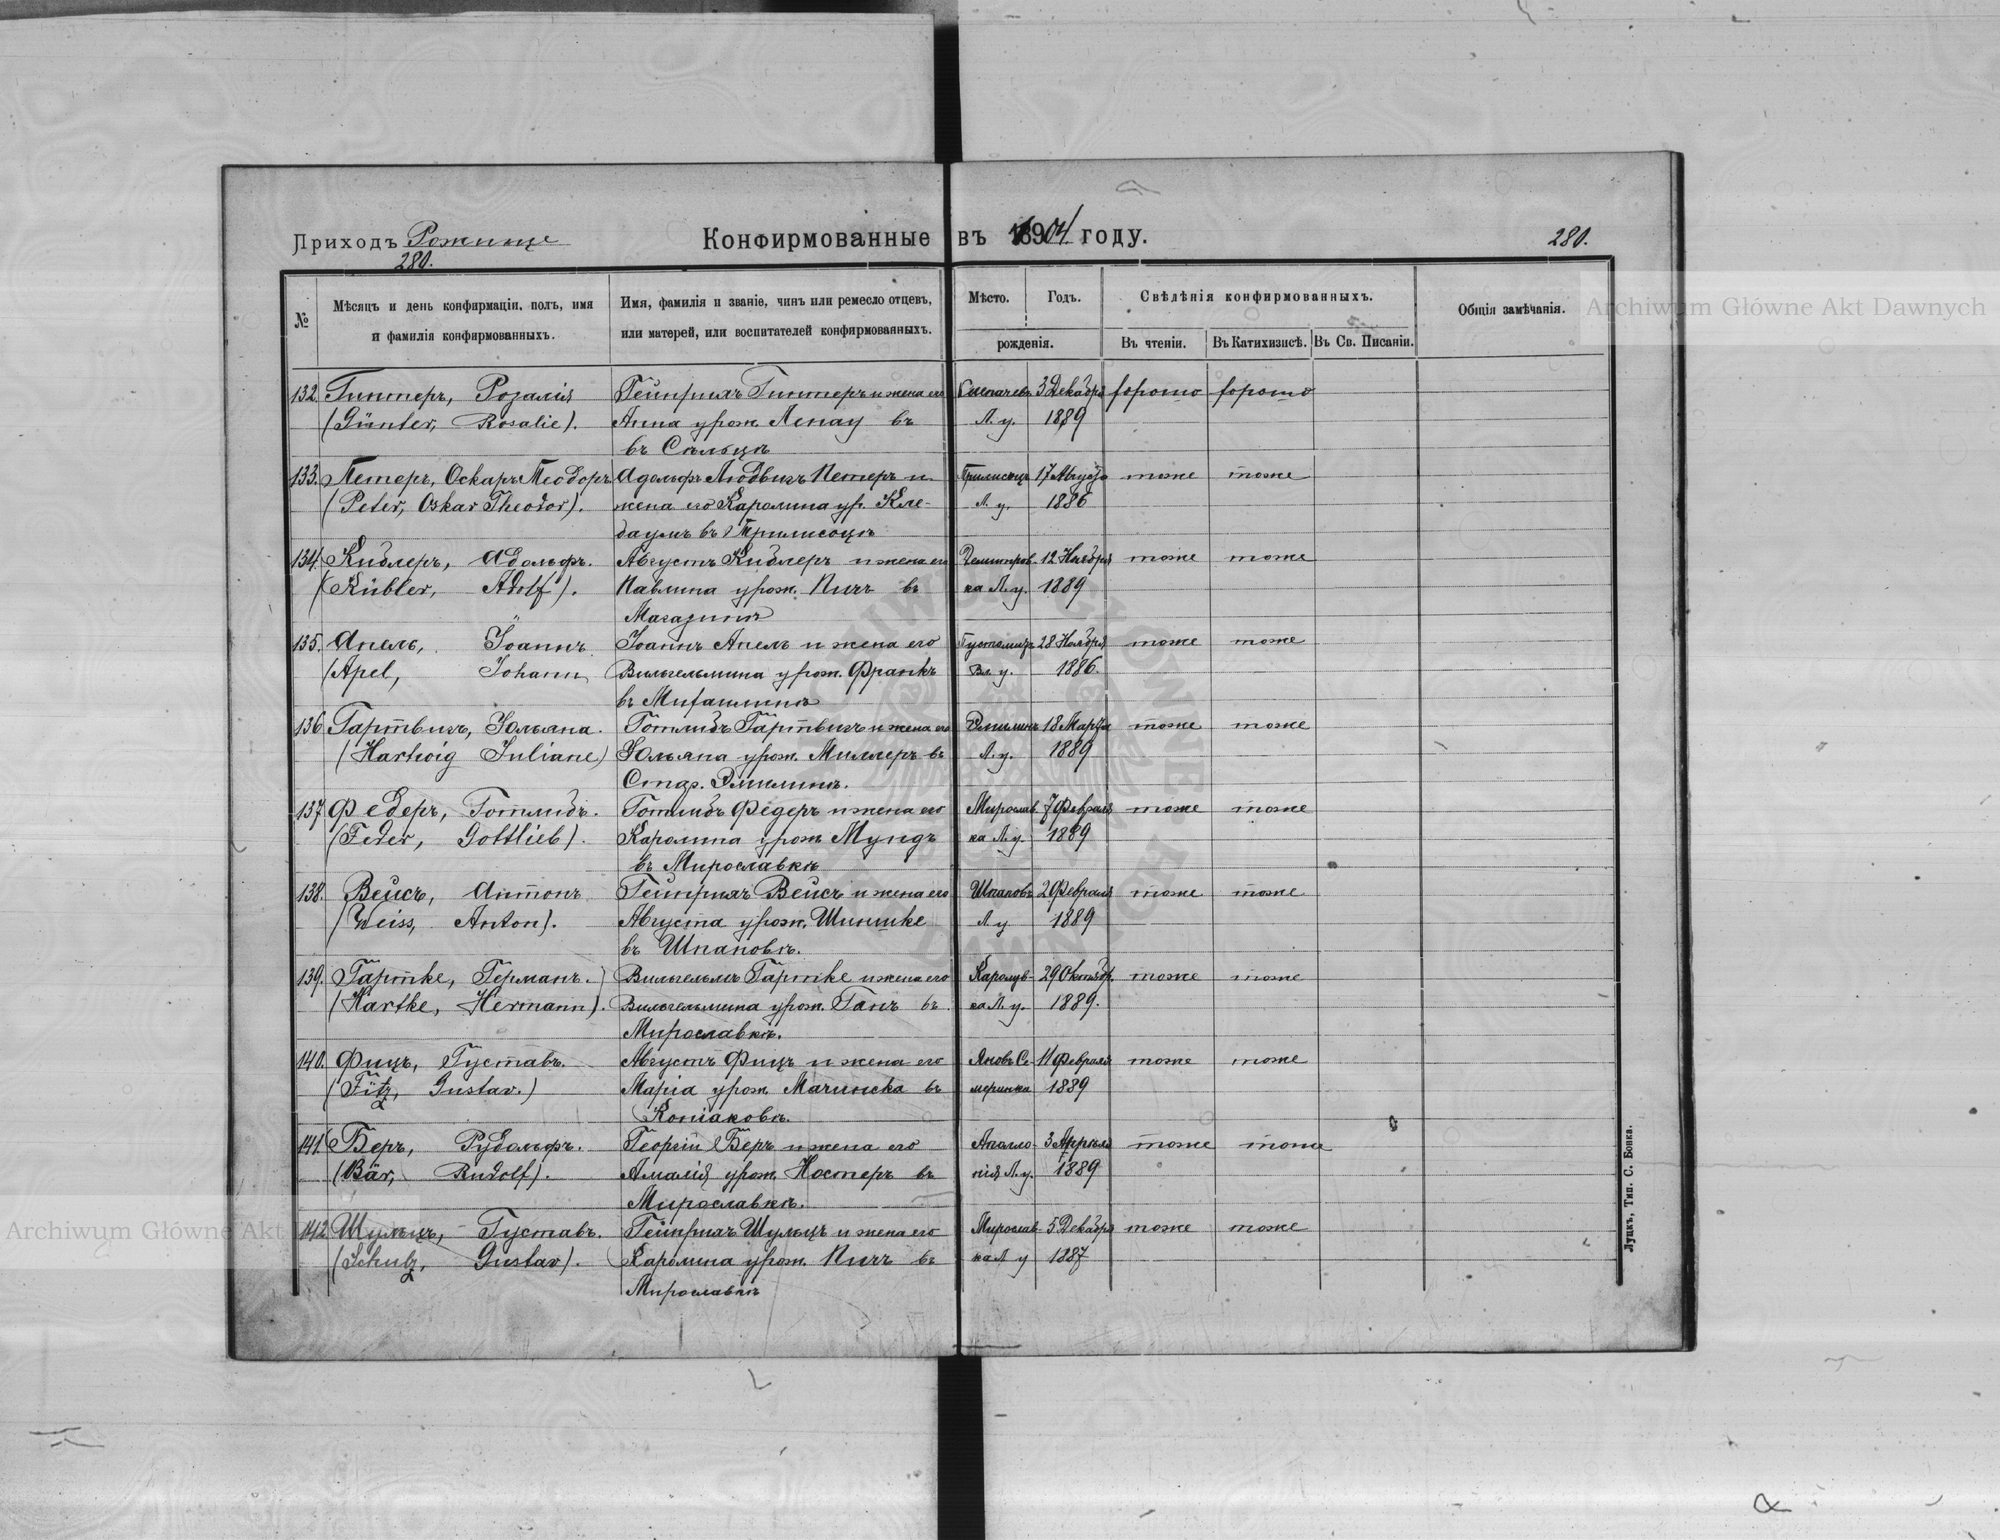 Приходъ Рожище
280.
Конфирмованные въ 1904 году.
280.
№
Мѣсяцъ и день конфирмаціи, полъ, имя
и фамилія конфирмованныхъ.
Имя, фамилія и званіе, чинъ или ремесло отцевъ,
или матерей, или воспитателей конфирмованныхъ.
Мѣсто. Годъ.
рожденія.
Свѣдѣнія конфирмованныхъ.
Въ чтеніи. Въ Катихизисѣ. Въ Св. Писаніи.
Общія замѣчанія.
Archiwum Główne Akt Dawnych
132. Гинтеръ, Розалія Гейнрихъ Гинтеръ и жена его 3 Декабря хорошо хорошо
(Günter, Rosalie). Анна урож. Ленау въ Л. у. 1889
въ Сѣльцѣ
133. Петеръ, Оскаръ Теодоръ Адольфъ Людвигъ Петеръ и 17 Августа тоже тоже
(Peter, Oskar Theodor). жена его Каролина ур. Кле- Л. у. 1886
134. Киблеръ, Адольфъ. Августъ Киблеръ и жена его 12 Ноября тоже тоже
(Kübler, Adolf). Павлина урож. Пичъ въ ка Л. у. 1889
135. Апель, Іоаннъ Іоаннъ Апель и жена его 28 Ноября тоже тоже
(Apel, Johann Вильгельмина урож. Франкъ Вл. у. 1886.
136 Гартвигъ, Юльяна. Готлибъ Гартвигъ и жена его 18 Марта тоже тоже
(Hartwig Juliane) Юльяна урож. Миллеръ въ Л. у. 1889
137 Федеръ, Готлибъ. Готлибъ Федеръ и жена его Мирослав- 7 Февраля тоже тоже
(Feder, Gottlieb). Каролина урож. Мундъ ка Л. у. 1889
въ Мирославкѣ
138. Вейсъ, Антонъ Гейнрихъ Вейсъ и жена его Шпановъ 2 Февраля тоже тоже
(Weiss, Anton). Августа урож. Л. у 1889
въ Шпановѣ.
139. Гартke, Германъ. Вильгельмъ Гартke и жена его 29 Октябр. тоже тоже
(Hartke, Hermann). Вильгельмина урож. Ганъ въ ка Л. у. 1889.
Мирославкѣ.
140. Фицъ, Густавъ. Августъ Фицъ и жена его 11 Февраля тоже тоже
(Fitz, Gustav.) Марія урож. въ 1889
141. Беръ, Рудольфъ. Георгій Беръ и жена его Аполло- 3 Апрѣля тоже тоже
(Bär, Rudolf). Амалія урож. въ нія Л. у. 1889
Мирославкѣ.
142 Шульцъ, Густавъ. Гейнрихъ Шульцъ и жена его Мирослав- 5 Декабря тоже тоже
(Schulz, Gustav). Каролина урож. Пичъ въ ка Л у 1887
Мирославкѣ
Луцкъ, Тип. С. Бонка.
Archiwum Główne Akt